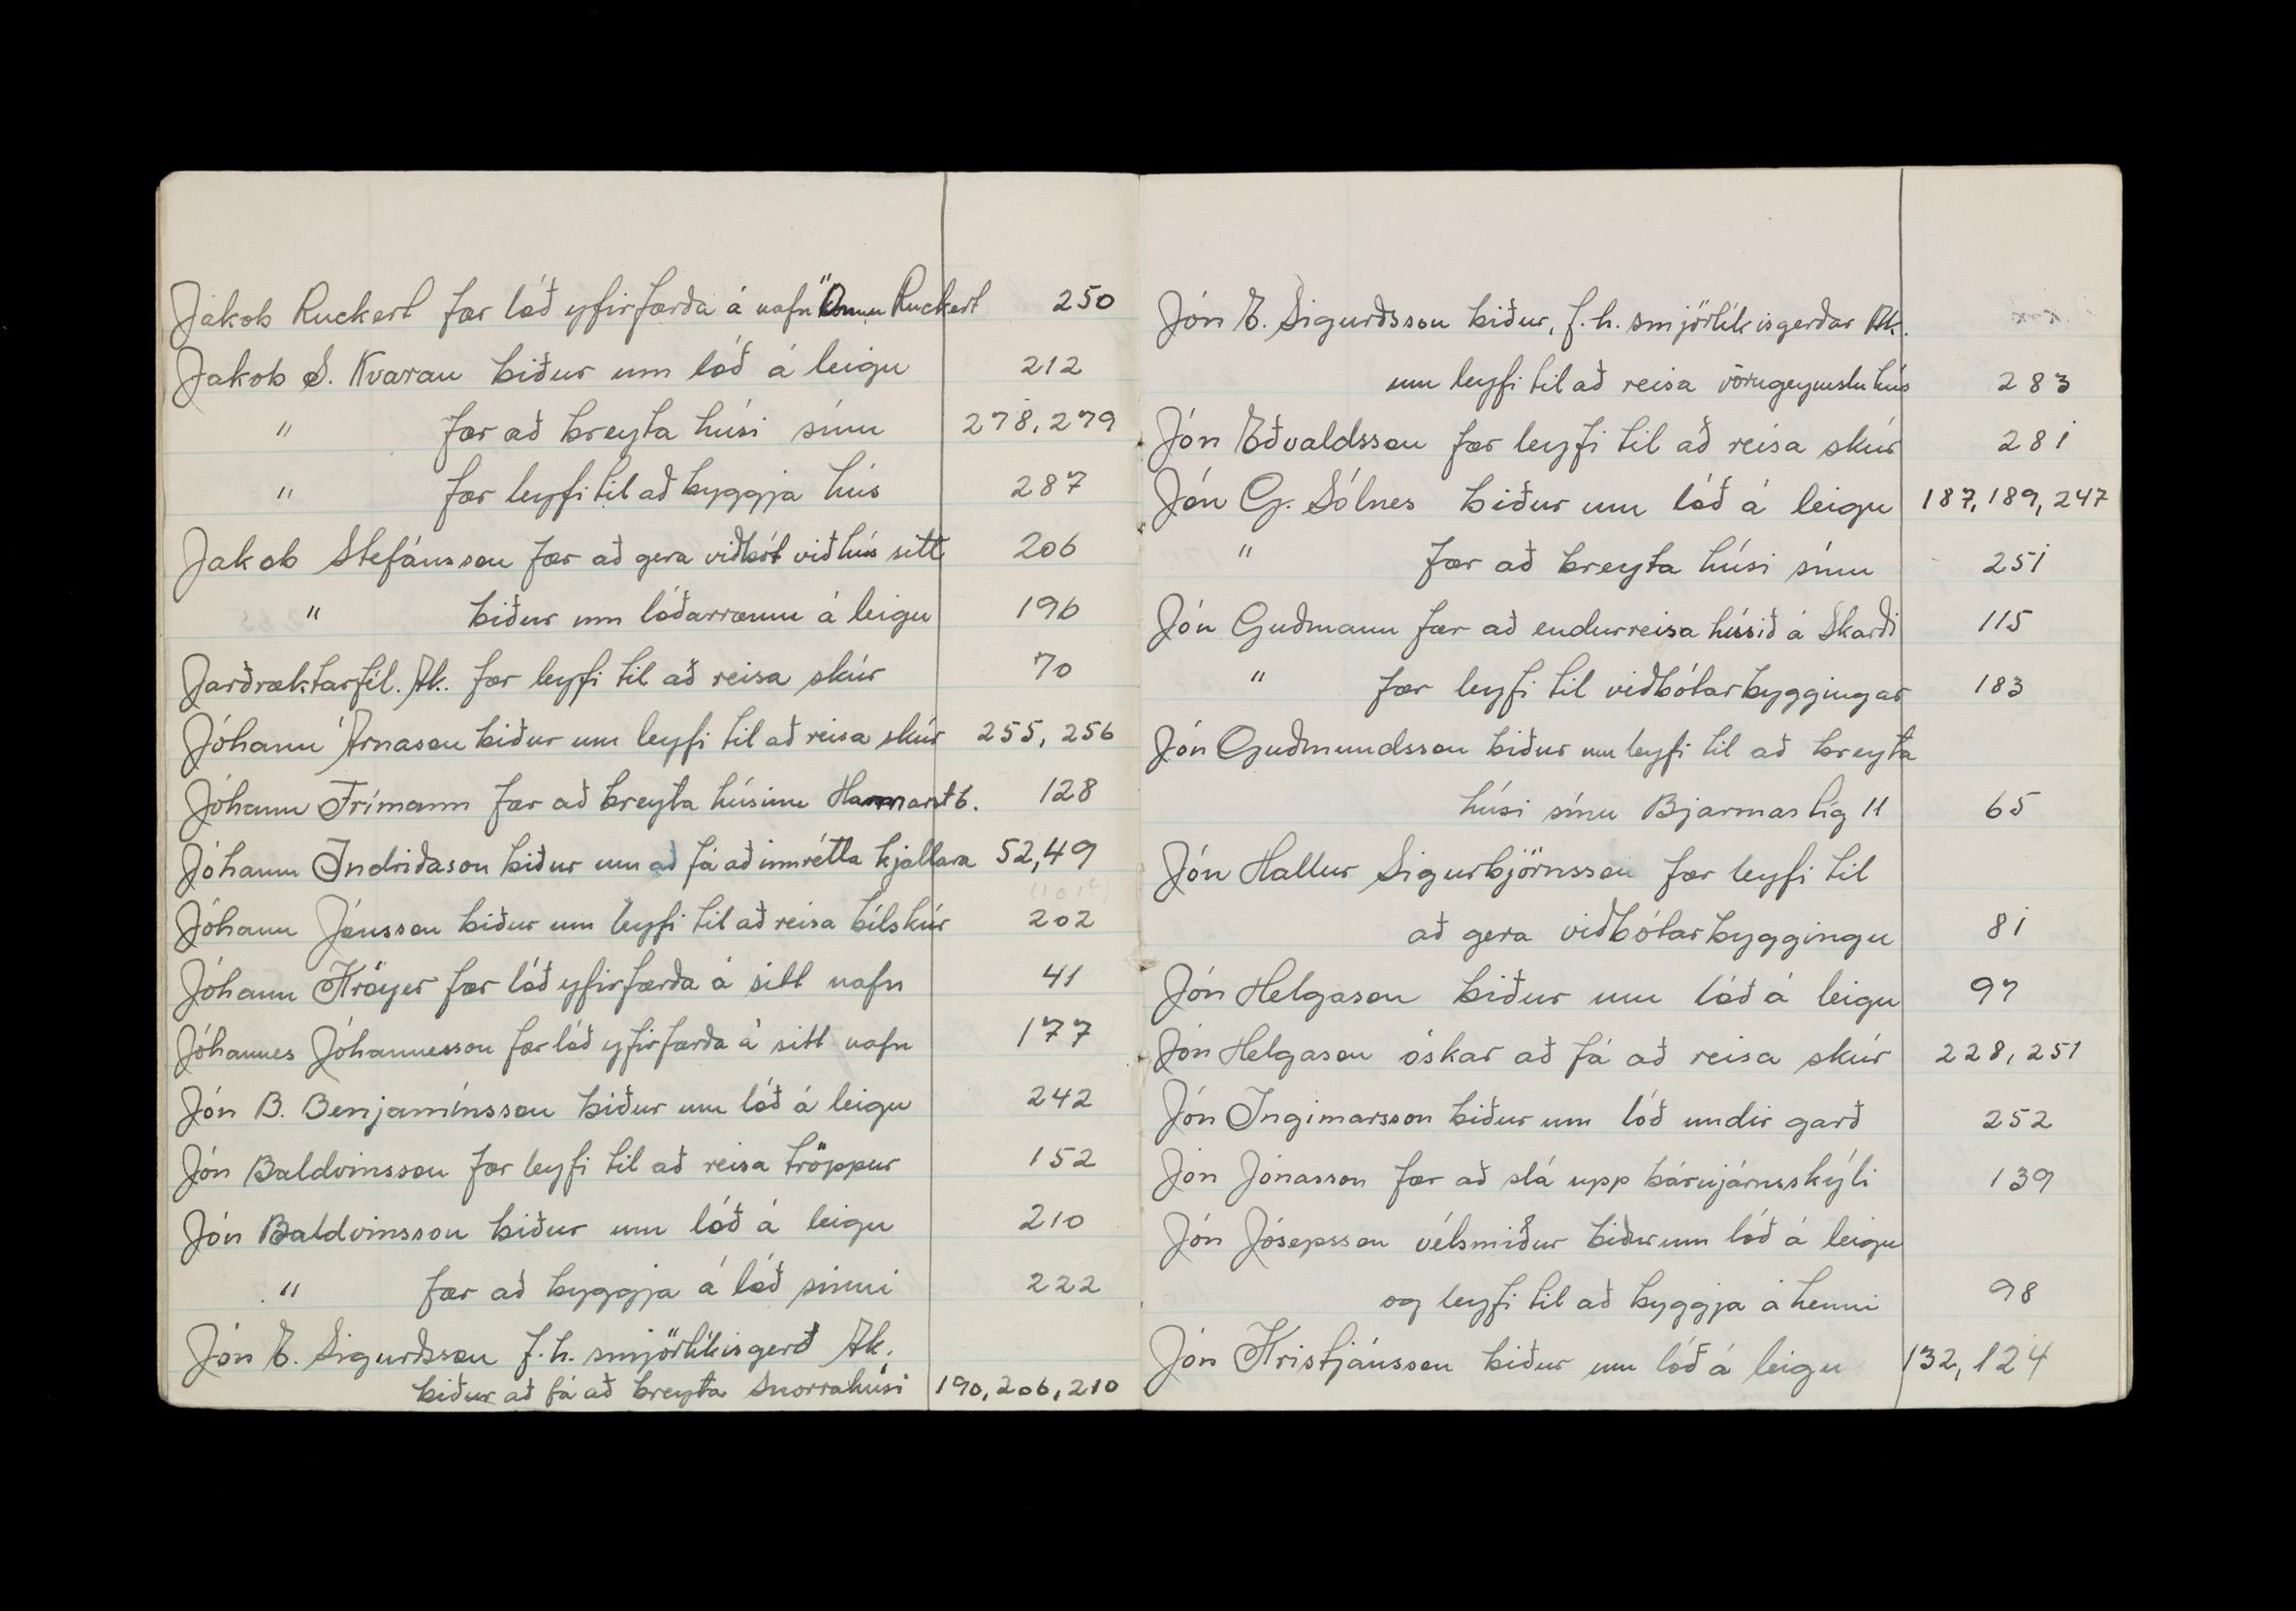 Jakob Ruckert fær lóð yfirfærða á nafn Önnu Ruckert 250
Jakob S. Kvaran biður um lóð á leigu 212
" fær að breyta húsi sínu 278, 279
" fær leyfi til að byggja hús 287
Jakob Stefánsson fær að gera viðbót við hús sitt 206
" biður um lóðarræmu á leigu 196
Jarðræktarfél. Ak. fær leyfi til að reisa skúr 70
Jóhann Árnason biður um leyfi til að reisa skúr 255, 256
Jóhann Frímann fær að breyta húsinu Hamarst 6. 128
Jóhann Indriðason biður um að fá að innrétta kjallara 52,49
Jóhann Jónsson biður um leyfi til að reisa bílskúr 202
Jóhann Kröyer fær lóð yfirfærða á sitt nafn 41
Jóhannes Jóhannesson fær lóð yfirfærða á sitt nafn 177
Jón B. Benjamínsson biður um lóð á leigu 242
Jón Baldvinsson fær leyfi til að reisa tröppur 152
Jón Baldvinsson biður um lóð á leigu 210
" fær að byggja á lóð sinni 222
Jón E. Sigurðsson f.h. smjörlíkisgerð Ak.
biður að fá að breyta Snorrahúsi 190, 206, 210
Jón E. Sigurðsson biður, f.h. smjörlíkisgerðar Ak.
um leyfi til að reisa vörugeymsluhús 283
Jón Eðvaldsson fær leyfi til að reisa skúr 281
Jón G. Sólnes biður um lóð á leigu 187, 189, 247
" fær að breyta húsi sínu 251
Jón Guðmann fær að endurreisa húsið á Skarði 115
" fær leyfi til viðbótarbyggingar 183
Jón Guðmundsson biður um leyfi til að breyta
húsi sínu Bjarmastíg 11 65
Jón Hallur Sigurbjörnsson fær leyfi til
að gera viðbótarbyggingu 81
Jón Helgason biður um lóð á leigu 97
Jón Helgason óskar að fá að reisa skúr 228, 251
Jón Ingimarsson biður um lóð undir garð 252
Jón Jónasson fær að slá upp bárujárnsskýli 139
Jón Jósepsson vélsmiður biður um lóð á leigu
og leyfi til að byggja á henni 98
Jón Kristjánsson biður um lóð á leigu 132, 124